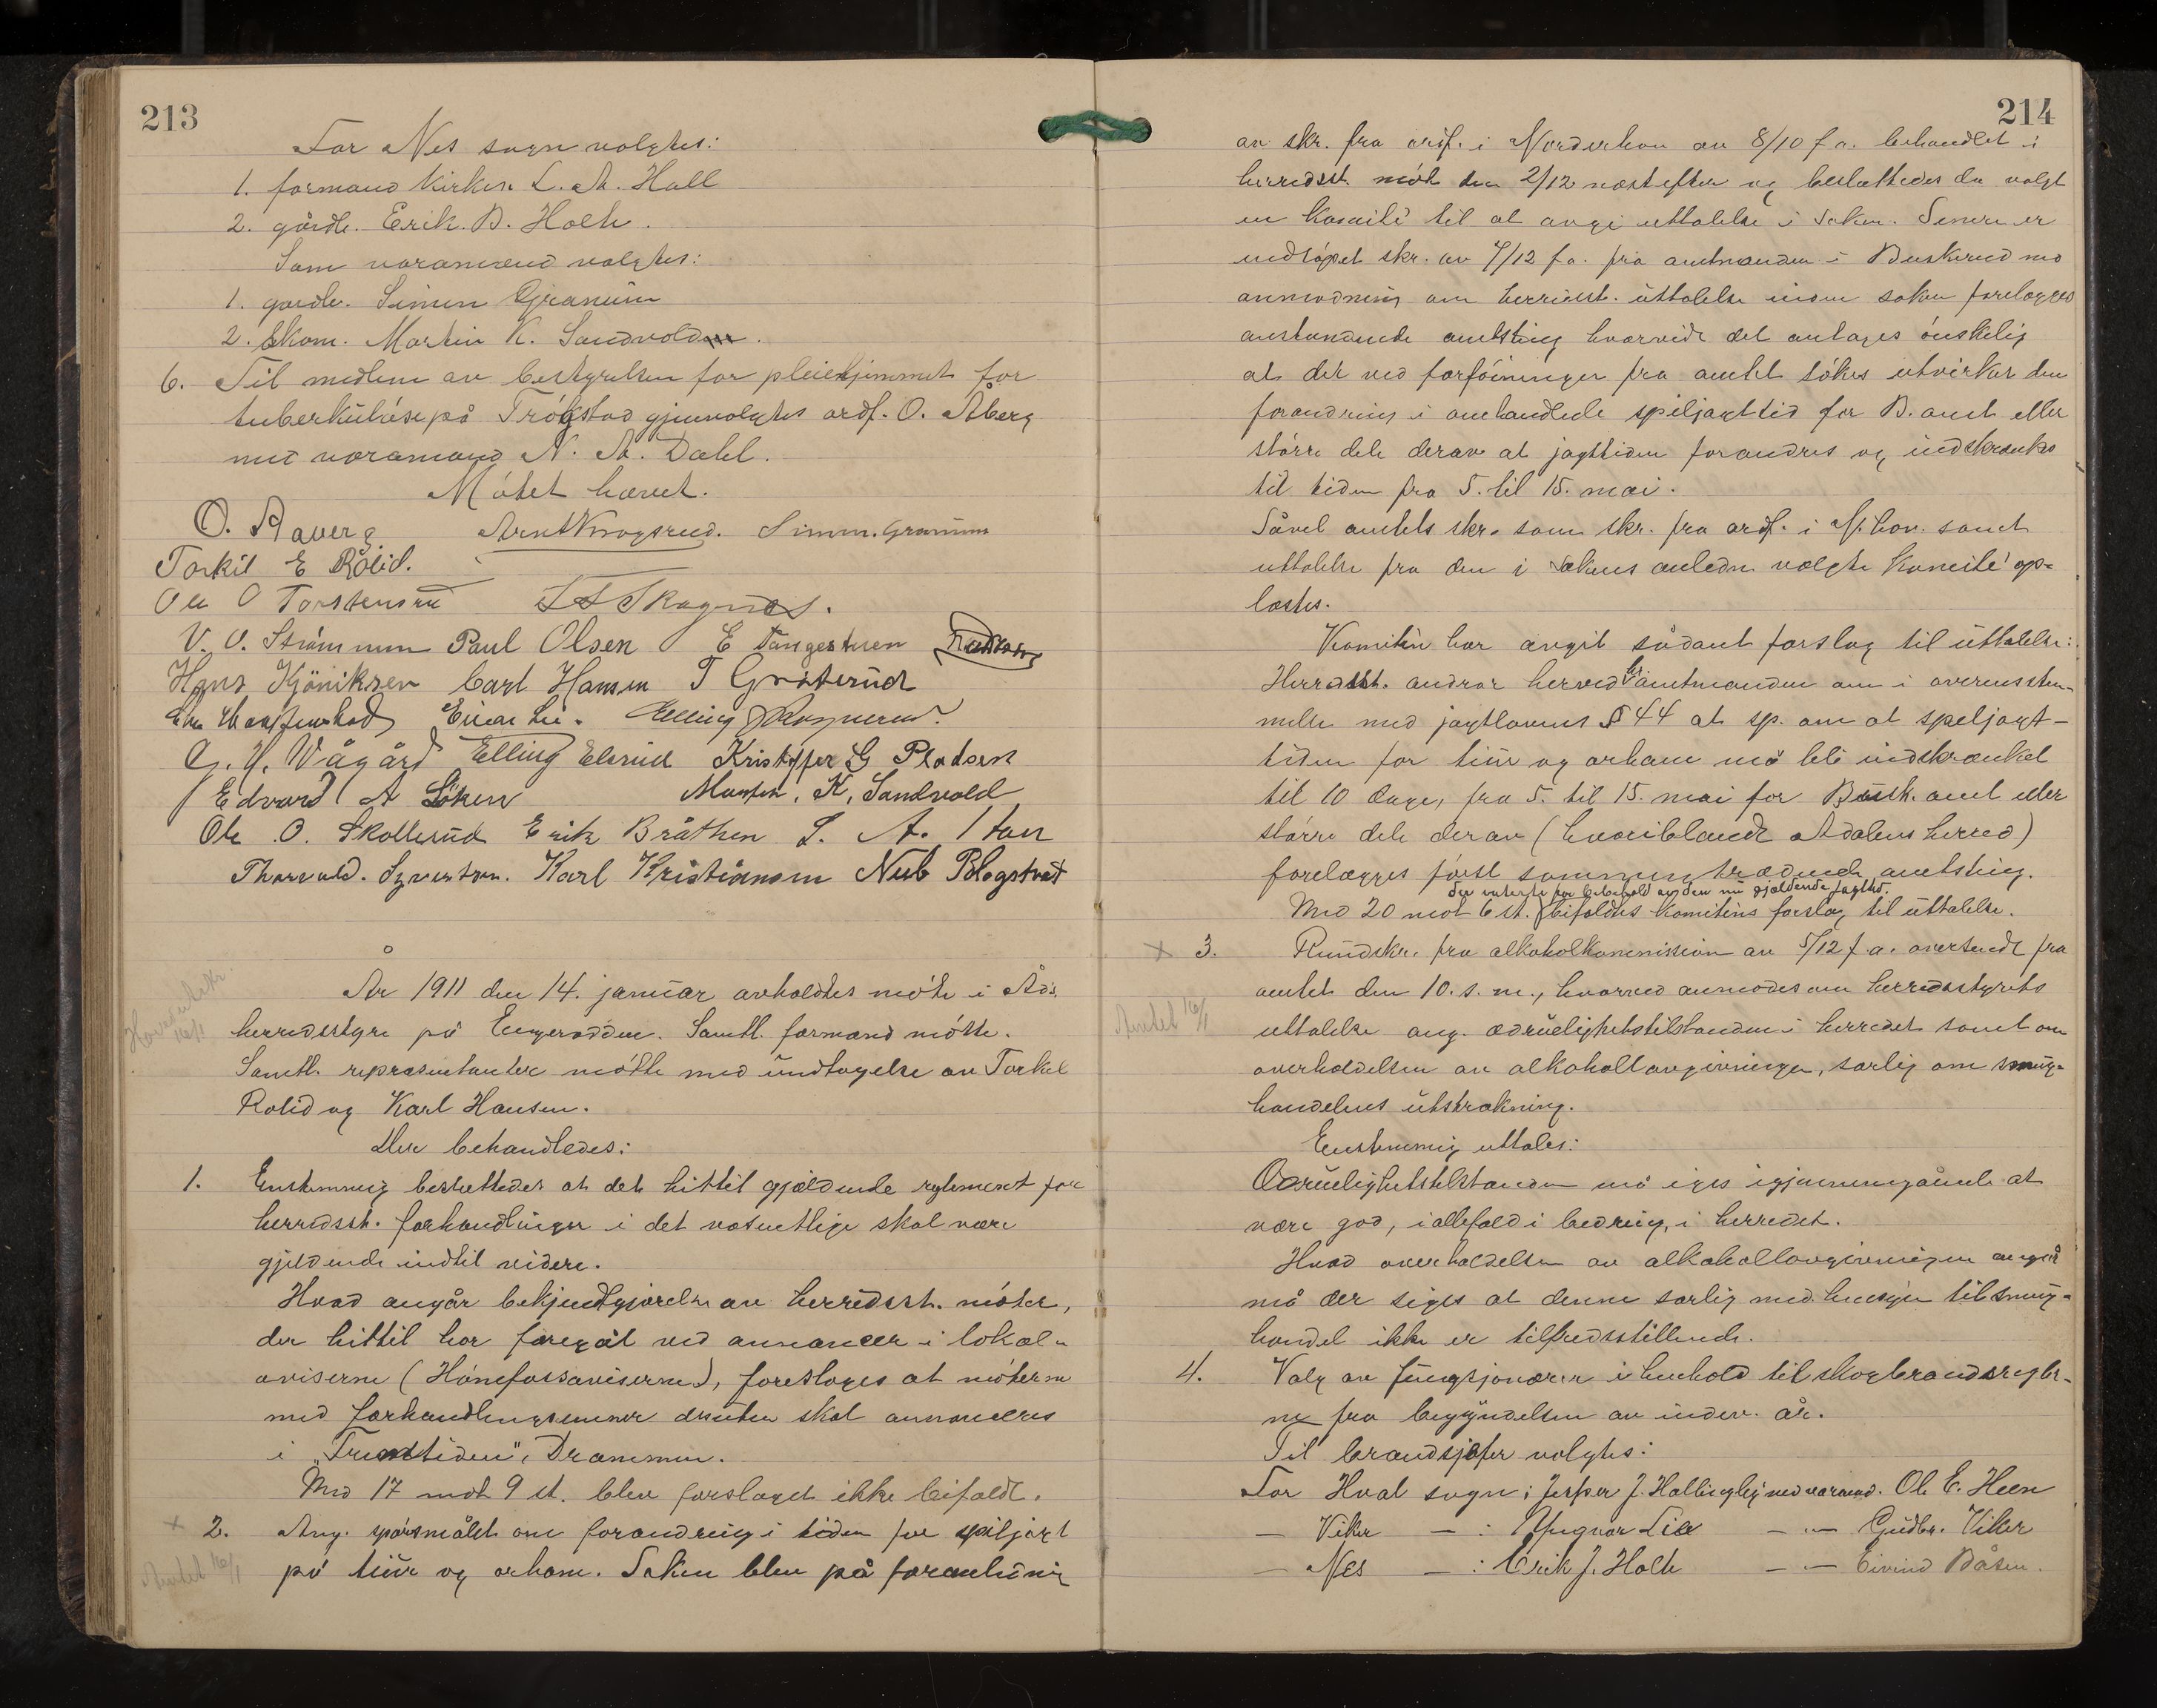 213
For Nes sogn valgtes:
1. formand kirkes. L. A. Hall
2. gårdb. Erik B. Holte.
Som varamænd valgtes:
1. gaardb. Simen Granum
2. Skom. Martin K. Sandvold.
6. Til medlem av bestyrelsen for pleiehjemmet for
tuberkuløse på Trøgstad gjenvalgtes ordf. O. Åberg
med varamand N. A. Dahl.
Møtet hævet.
O. Aaberg Arnt Krogsrud. Simen Granum
Torkil E Rolid.
Ole O Torstensrud Skagnæs.
V. O. Strømmen Paul Olsen E Tangesteen
Hans Kjøniksen Carl Hansen T Gråterud
Einar Lie. Elling Ragnerud.
G. H. Vågård Elling Elsrud Kristoffer G Pladsen
Edvard A Løken Martin, K, Sandvold
Ole O. Skollerud Erik Bråthen L. A. Hall
Thorvald Syversen. Karl Kristiansen Nub Blagstvet
År 1911 den 14. januar avholdtes møte i Åds.
herredsstyre på Engerodden. Samtl. formænd møtte.
Samtl. repræsentanter møtte med undtagelse av Torkel
Rolid og Karl Hansen.
Der behandledes:
1. Enstemmig besluttedes at det hittil gjældende reglement for
herredsst. forhandlinger i det væsentlige skal være
gjeldende indtil videre.
Hvad angår bekjendtgjørelse av herredsst. møter,
der hittil har foregåt ved annoncer i lokal-
aviserne (Hønefossaviserne), foresloges at møterne
med forhandlingsemner desuten skal annonceres
i „Fremtiden", Drammen.
Med 17 mot 9 st. blev forslaget ikke bifaldt.
× 2. Ang. spørsmålet om forandring i tiden for spiljagt
Amtet 16/1 på tiur og orhane. Saken blev på foranledning
214
av skr. fra ordf. i Norderhov av 8/10 f. a. behandlet i
herredsst. møte den 2/12 næstefter og besluttedes da valgt
en komité til at avgi uttalelse i saken. Senere er
indløpet skr. av 7/12 f. a. fra amtmanden i Buskerud med
anmodning om herredsst. uttalelse inden saken forelægges
anstundende amtsting hvorvidt det antages ønskelig
at det ved forføininger fra amtet søkes utvirket den
forandring i omhandlede spiljagttid for B. amt eller
større dele derav at jagttiden forandres og indskrænkes
til tiden fra 5. til 15. mai.
Såvel amtets skr. som skr. fra ordf. i N.hov. samt
uttalelse fra den i sakens anledn. valgte komité op-
læstes.
Komitéen har avgit sådant forslag til uttalelse:
Herredsst. andrar herved for amtmanden om i overensstem-
melse med jagtlovens § 44 at sp. om at speljagt-
tiden for tiur og orhane må bli indskrænket
til 10 dage, fra 5. til 15. mai for Busk. amt eller
større dele derav (hvoriblandt Ådalens herred)
forelægges først sammentrædende amtsting.
der voterte for bibehold av den nu gjældende jagttid.
Med 20 mot 6 st. bifaldtes komitéens forslag til uttalelse.
× 3. Rundskr. fra alkoholkommission av 5/12 f. a. oversendt fra
amtet den 10. s. m., hvorved anmodes om herredsstyrets
Amtet 16/1 uttalelse ang. ædruelighetstilstanden i herredet samt om
overholdelsen av alkohollovgivningen, særlig om smug-
handelens utstrækning.
Enstemmig uttales:
Ædruelighetstilstanden må siges igjennemgående at
være god, iallefald i bedring, i herredet.
Hvad overholdelsen av alkohollovgivningen angår
må der siges at denne særlig med hensyn til smug-
handel ikke er tilfredsstillende.
4. Valg av fungsjonærer i henhold til skogbrandsregle-
ne fra begyndelsen av indev. år.
Til brandsjefer valgtes:
For Hval sogn: Jesper J. Hallingby med varamd. Ole E. Heen
— Viker — : Yngvar Lie — „ — Gudbr. Viker
— Nes — : Erik J. Holte — „ — Eivind Båsen.